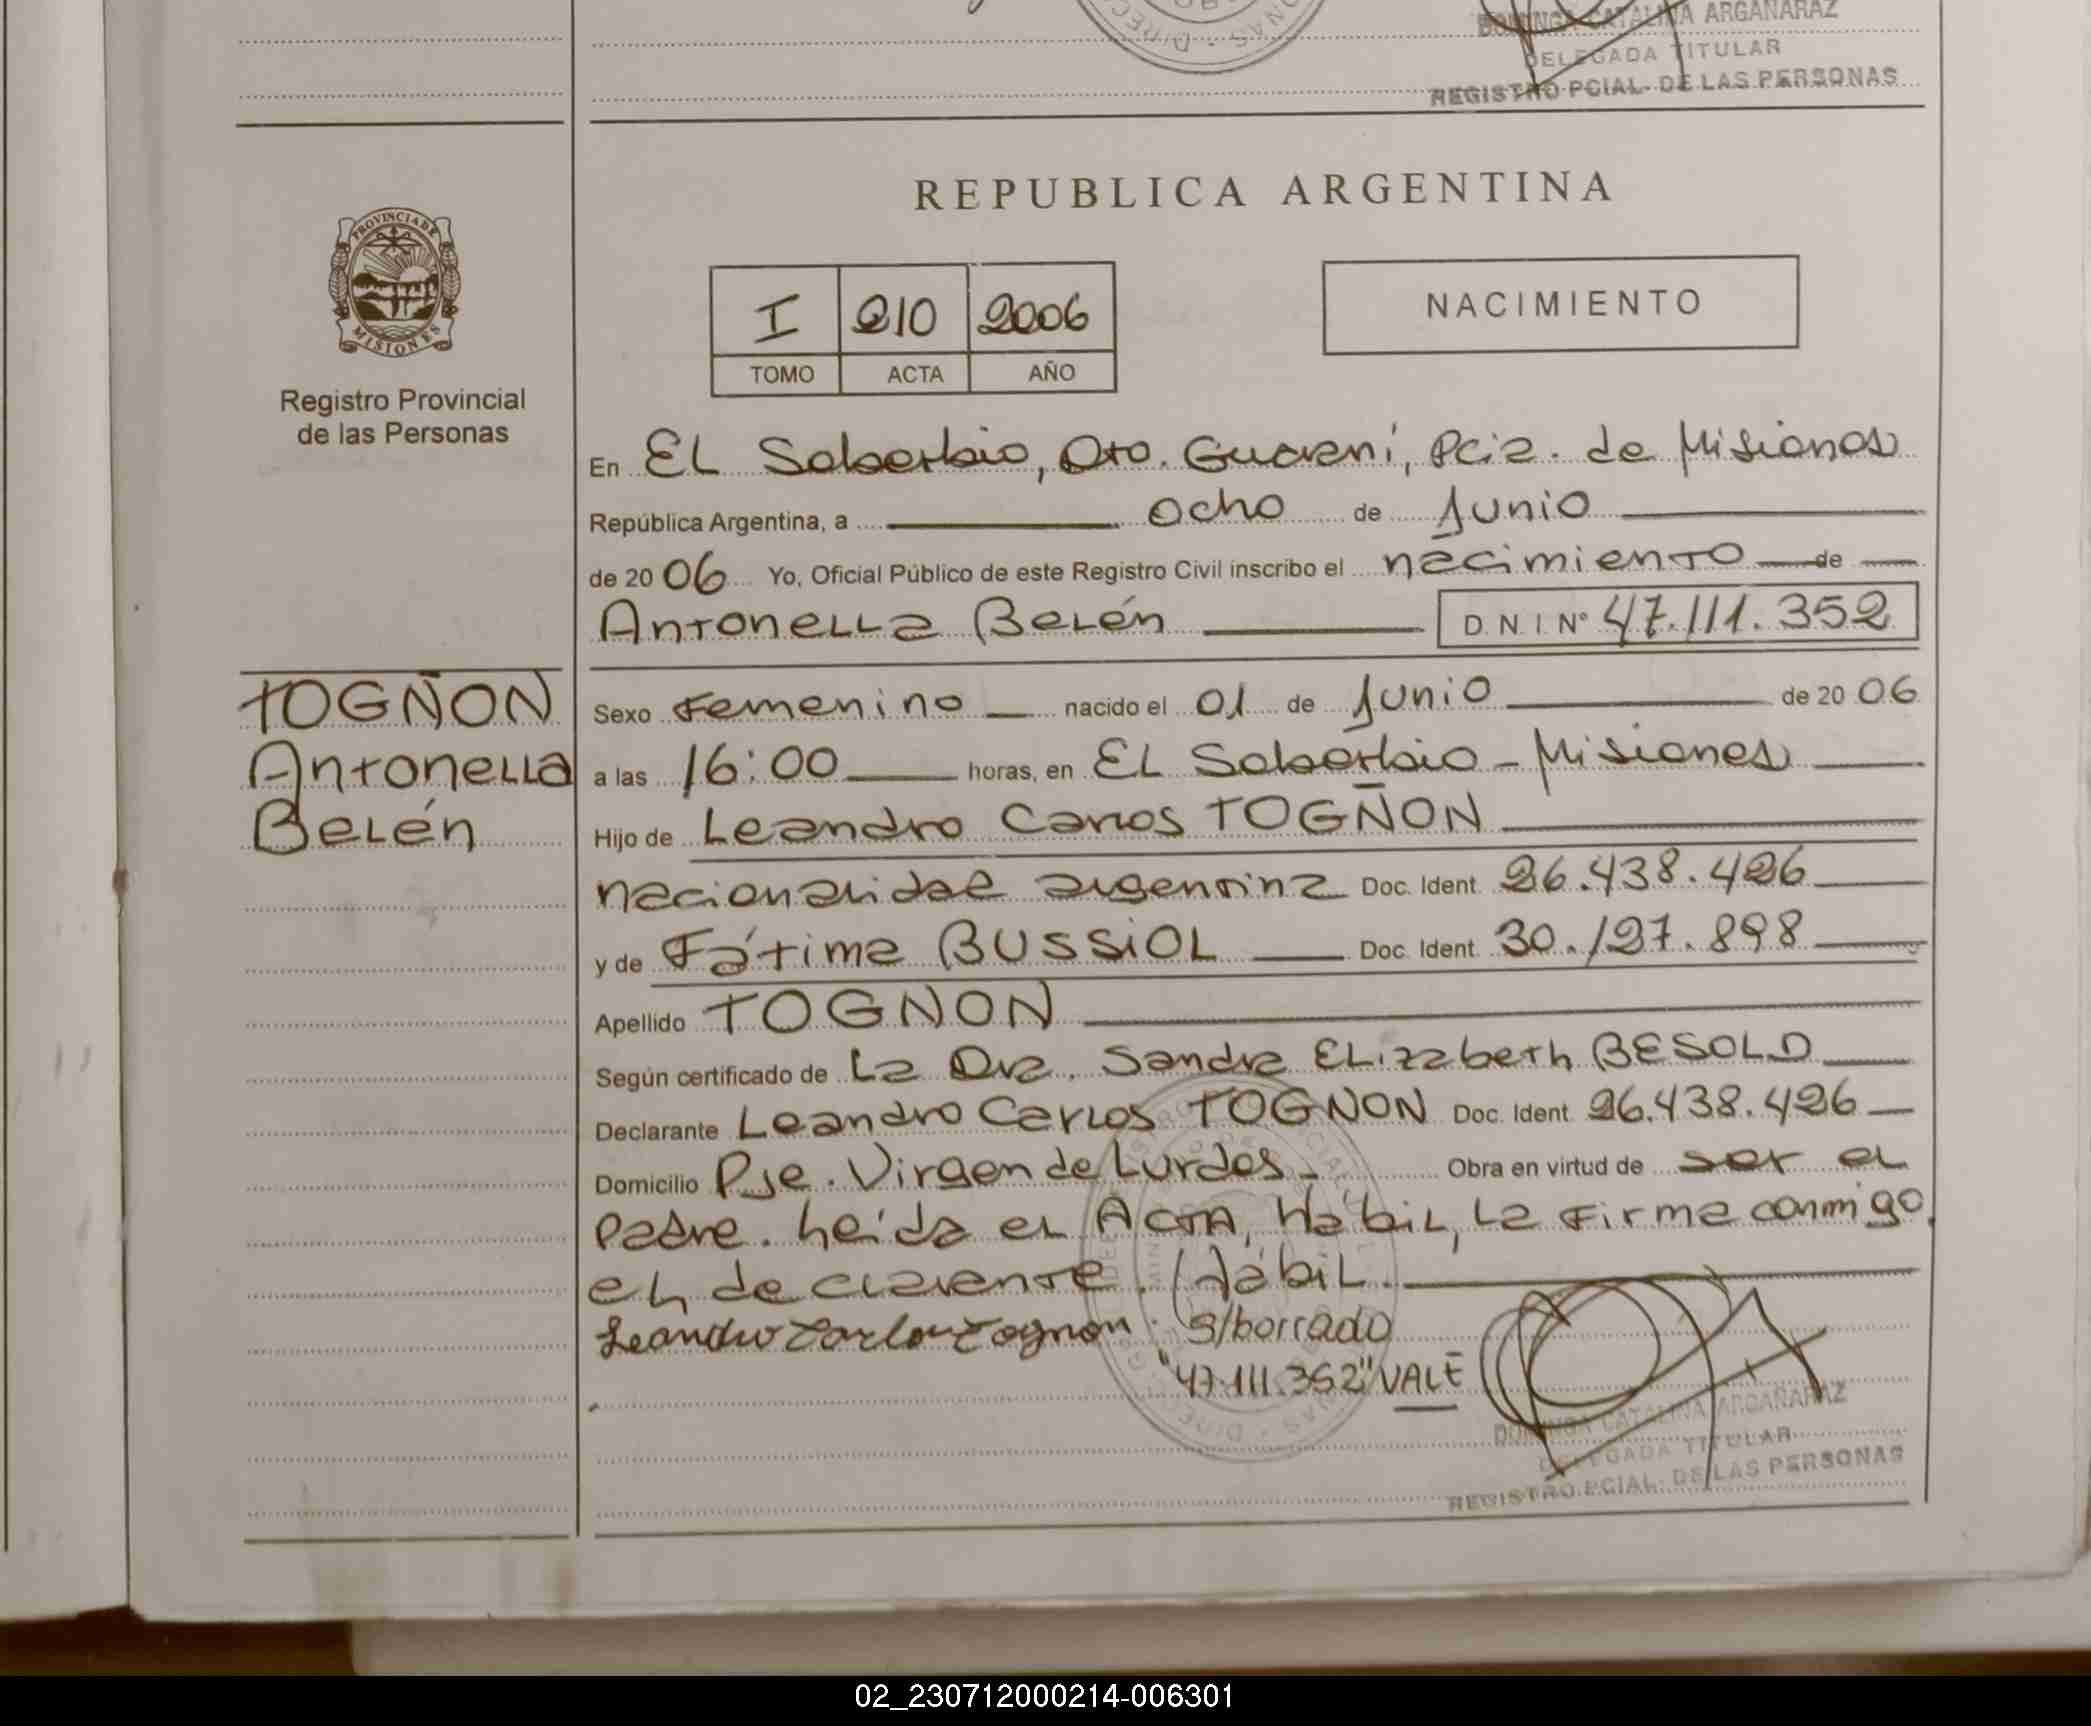 DOMINGA CATALINA ARGAÑARAZ
DELEGADA TITULAR
REGISTRO PCIAL. DE LAS PERSONAS
REPUBLICA ARGENTINA
PROVINCIA DE
MISIONES
Registro Provincial
de las Personas
I 210 2006
TOMO ACTA AÑO
NACIMIENTO
En EL Soberbio, Dto. Guaraní, Pcia. de Misiones
República Argentina, a ocho de Junio
de 2006 Yo, Oficial Público de este Registro Civil inscribo el nacimiento de
Antonella Belén D.N.I. Nº 47.111.352
TOGÑON
Antonella
Belén
Sexo Femenino nacido el 01 de Junio de 2006
a las 16:00 horas, en EL Soberbio - Misiones
Hijo de Leandro Carlos TOGÑON
nacionalidad argentina Doc. Ident. 26.438.426
y de Fátima BUSSIOL Doc. Ident. 30.127.898
Apellido TOGNON
Según certificado de La Dra. Sandra ELizabeth BESOLD
Declarante Leandro Carlos TOGNON Doc. Ident. 26.438.426
Domicilio Pje. Virgen de Lurdes - Obra en virtud de ser el
Padre. Leída el ACTA, Hábil, La Firma conmigo,
el declarante. Hábil.
Leandro Carlos Tognon S/borrado
"47.111.352" VALE
DOMINGA CATALINA ARGAÑARAZ
DELEGADA TITULAR
REGISTRO PCIAL. DE LAS PERSONAS
02_230712000214-006301